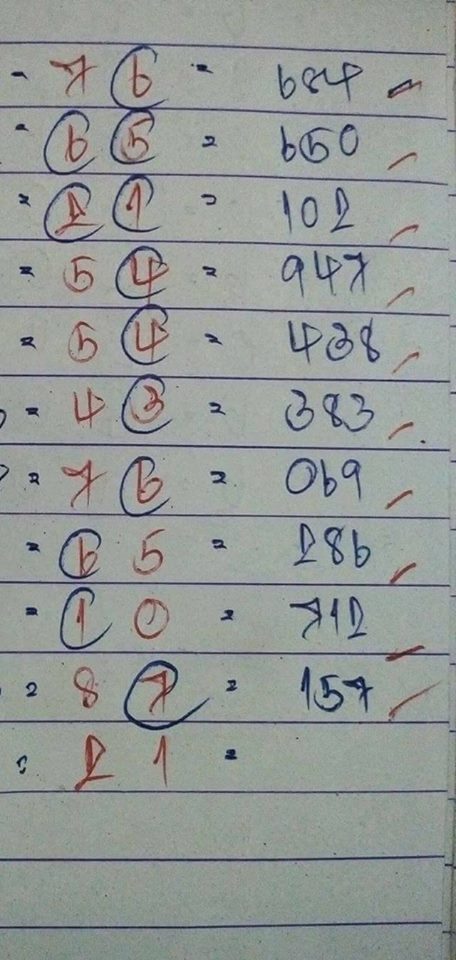 = 7 6 = 684
= 6 5 = 650
= 2 1 = 102
= 5 4 = 947
= 5 4 = 438
= 4 3 = 383
= 7 6 = 069
= 6 5 = 286
= 1 0 = 712
= 8 7 = 157
= 2 1 =